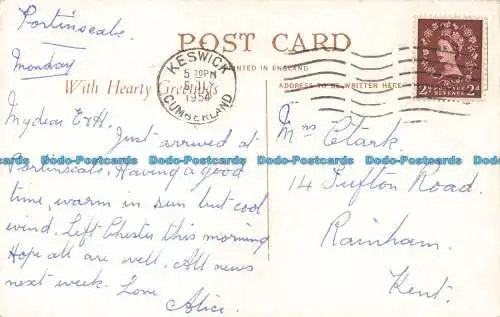 Portinscale.
Monday
POST CARD
PRINTED IN ENGLAND
With Hearty Greetings
ADDRESS TO BE WRITTEN
KESWICK
5 PM
JLY
1954
CUMBERLAND
2d 2d
My dear E & H. Just arrived at
Portinscale. Having a good
time, warm in sun but cool
wind. Left Chester this morning
Hope all are well. All news
next week. Love
Alice.
Mrs Clark.
14 Tufton Road.
Rainham.
Kent.
Dodo-Postcards Dodo-Postcards Dodo-Postcards Dodo-Postcards Dodo-Postcards